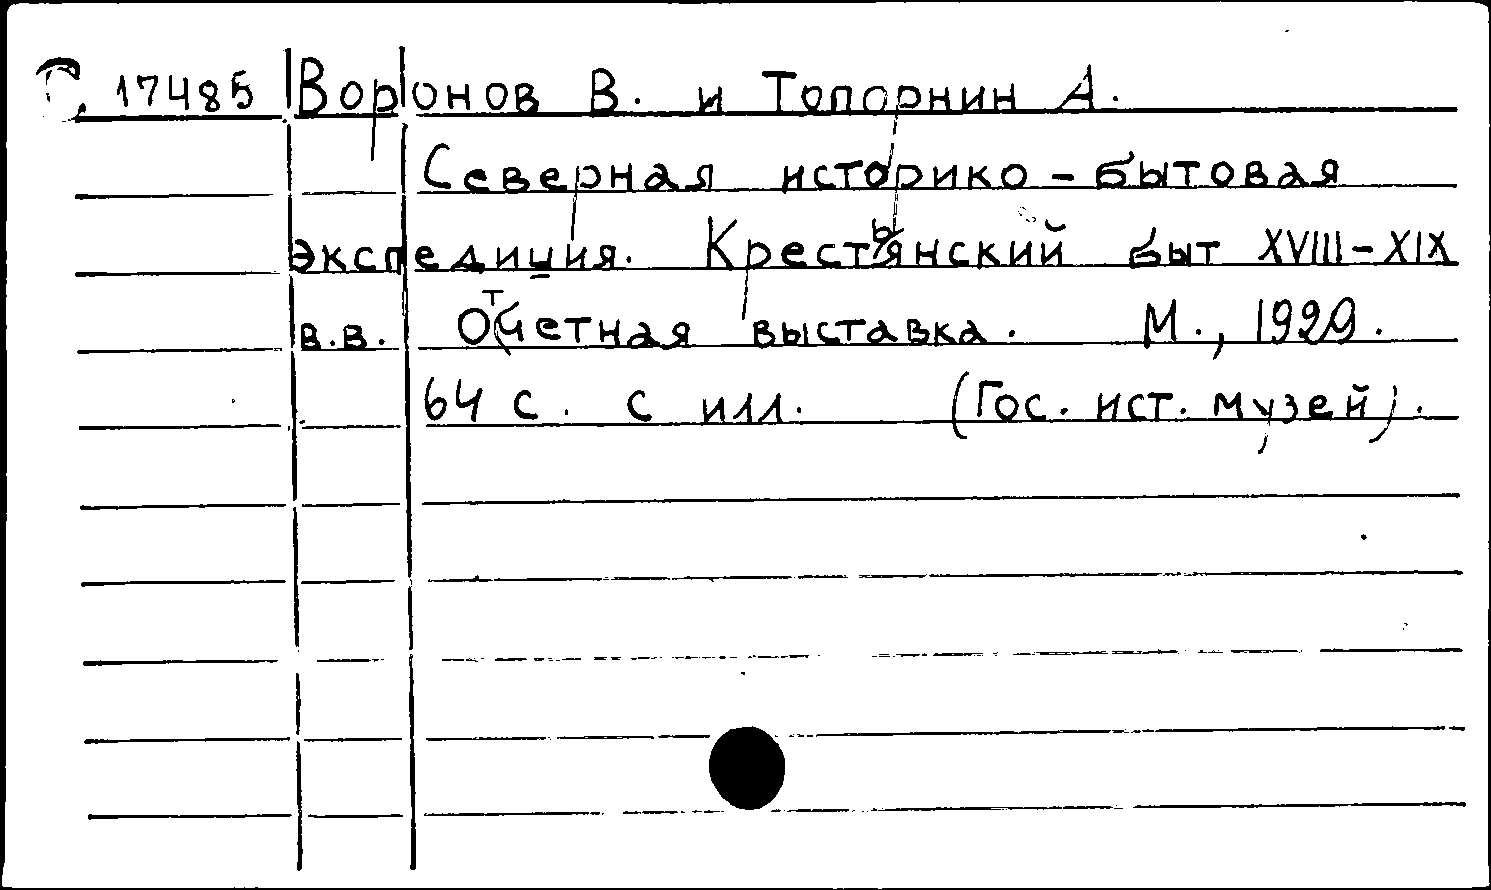 С. 17485 Воронов В. и Топорнин А.
Северная историко-бытовая
экспедиция. Крестьянский быт XVIII-XIX
в.в. Отчетная выставка. М., 1929.
64 с. с илл. (Гос. ист. музей).